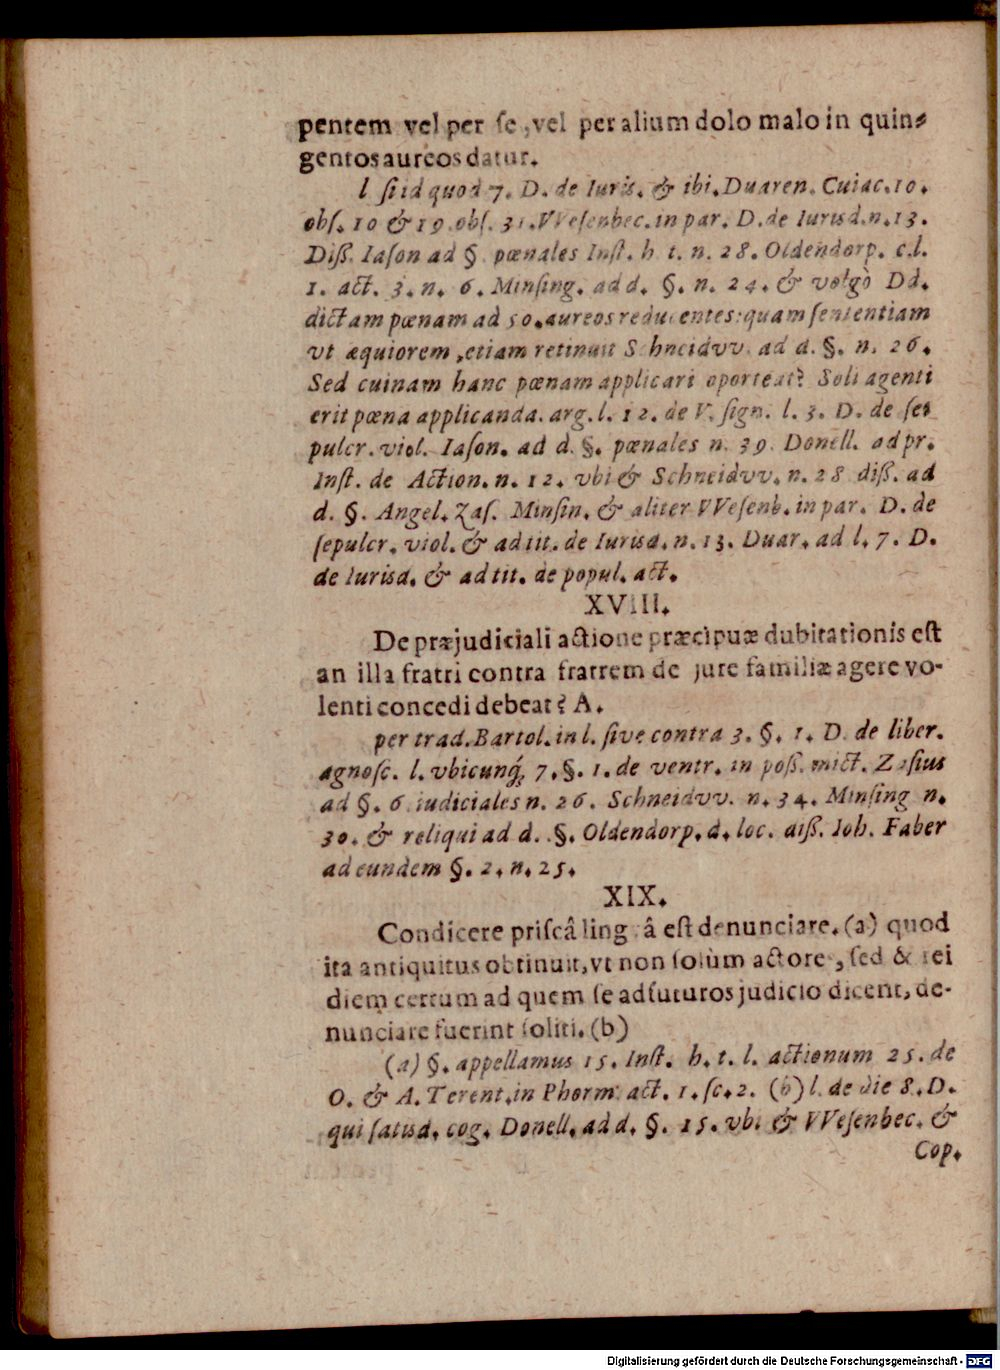 pentem vel per ſe, vel per alium dolo malo in quin-
gentos aureos datur.
l ſi id quod 7. D. de Iuris. & ibi. Duaren. Cuiac. 10.
obſ. 10 & 19. obſ. 31. VVeſenbec. in par. D. de Iurisd. n. 13.
Diß. Iaſon ad § pœnales Inſt. h t. n. 28. Oldendorp. c.l.
1. act. 3. n. 6. Minſing. ad d. §. n. 24. & volgò Dd.
dictam pœnam ad 50. aureos reducentes: quam ſententiam
vt æquiorem, etiam retinuit Schneidvv. ad d. §. n. 26.
Sed cuinam hanc pœnam applicari oporteat? Soli agenti
erit pœna applicanda. arg. l. 12. de V. ſign. l. 3. D. de ſe-
pulcr. viol. Iaſon. ad d. §. pœnales n. 39. Donell. ad pr.
Inſt. de Action. n. 12. vbi & Schneidvv. n. 28 diß. ad
d. §. Angel. Zaſ. Minſin. & aliter VVeſenb. in par. D. de
ſepulcr. viol. & ad tit. de Iurisd. n. 13. Duar. ad l. 7. D.
de Iurisd. & ad tit. de popul. act.
XVIII.
De præjudiciali actione præcipuæ dubitationis eſt
an illa fratri contra fratrem de jure familiæ agere vo-
lenti concedi debeat? A.
per trad. Bartol. in l. ſive contra 3. §. 1. D. de liber.
agnoſc. l. vbicunq́; 7. §. 1. de ventr. in poß. mict. Zaſius
ad §. 6 iudiciales n. 26. Schneidvv. n. 34. Minſing n.
30. & reliqui ad d. §. Oldendorp. d. loc. diß. Ioh. Faber
ad eundem §. 2. n. 25.
XIX.
Condicere priſcâ lingâ eſt denunciare. (a) quod
ita antiquitus obtinuit, vt non ſolùm actore, ſed & rei
diem certum ad quem ſe adfuturos judicio dicent, de-
nunciare fuerint ſoliti. (b)
(a) §. appellamus 15. Inſt. h. t. l. actionum 25. de
O. & A. Terent. in Phorm. act. 1. ſc. 2. (b) l. de die 8. D.
qui ſatisd. cog. Donell. ad d. §. 15. vbi & VVeſenbec. &
Cop.
Digitalisierung gefördert durch die Deutsche Forschungsgemeinschaft - DFG